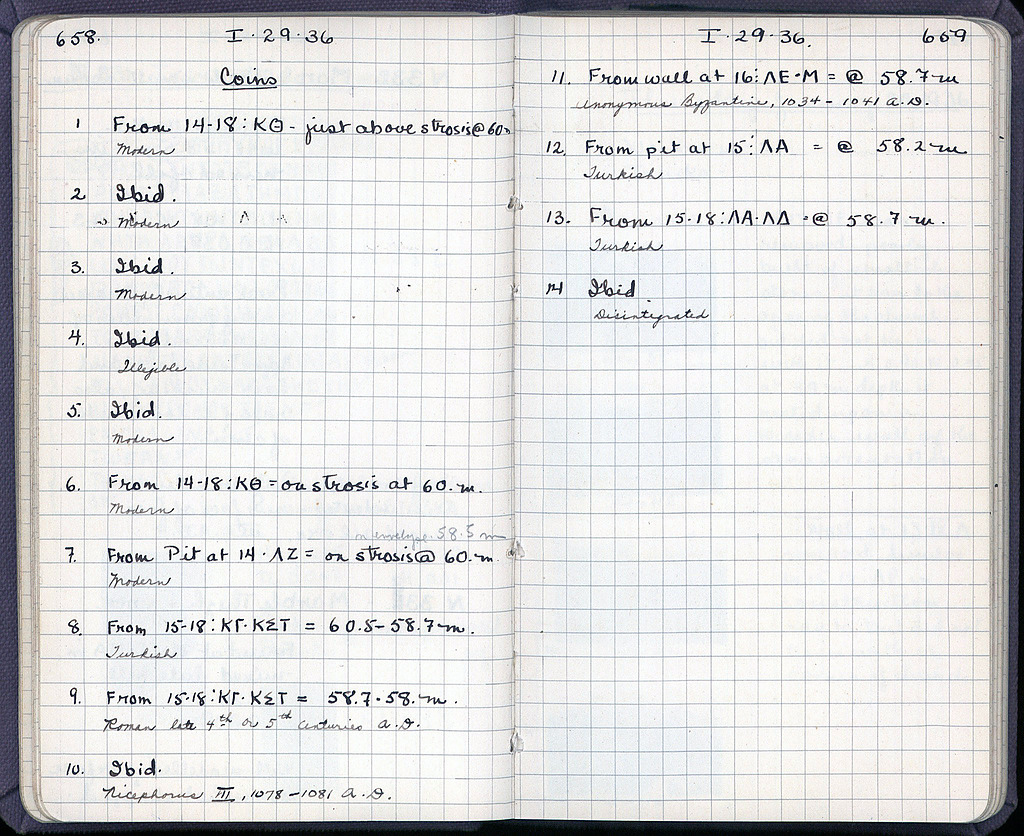 658.
I·29·36
Coins
1 From 14-18:ΚΘ - just above strosis @ 60m
Modern
2 Ibid.
Modern
3. Ibid.
Modern
4. Ibid.
Illegible
5. Ibid.
Modern
6. From 14-18:ΚΘ = on strosis at 60.m.
Modern
on envelope 58.5 m
7. From Pit at 14·ΛΖ = on strosis @ 60.m.
Modern
8. From 15-18:ΚΓ·ΚΣΤ = 60.5-58.7m.
Turkish
9. From 15-18:ΚΓ·ΚΣΤ = 58.7-58.m.
Roman late 4th or 5th centuries A.D.
10. Ibid.
Nicephorus III, 1078-1081 A.D.
I·29·36.
659
11. From wall at 16:ΛΕ·Μ = @ 58.7m
Anonymous Byzantine, 1034-1041 A.D.
12. From pit at 15:ΛΑ = @ 58.2m
Turkish
13. From 15-18:ΛΑ·ΛΔ - @ 58.7 m.
Turkish
14 Ibid
Disintegrated